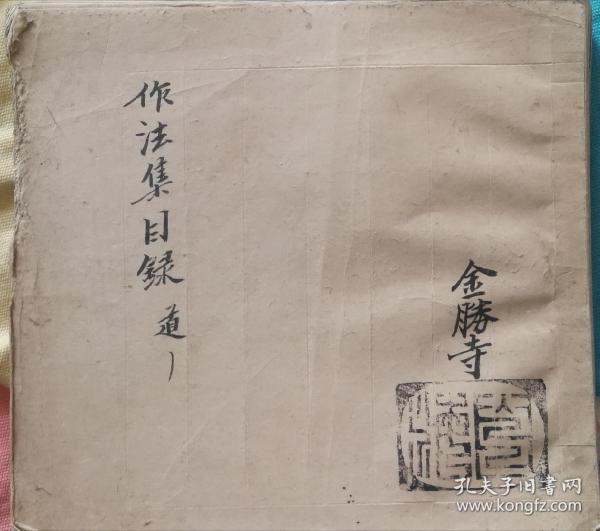 金勝寺
作法集目録 道
孔夫子旧书网
www.kongfz.com